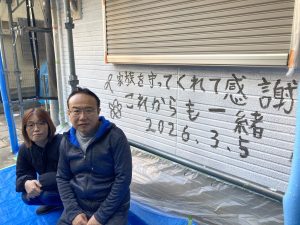 家族を守ってくれて感謝
これからも一緒
2026.3.5